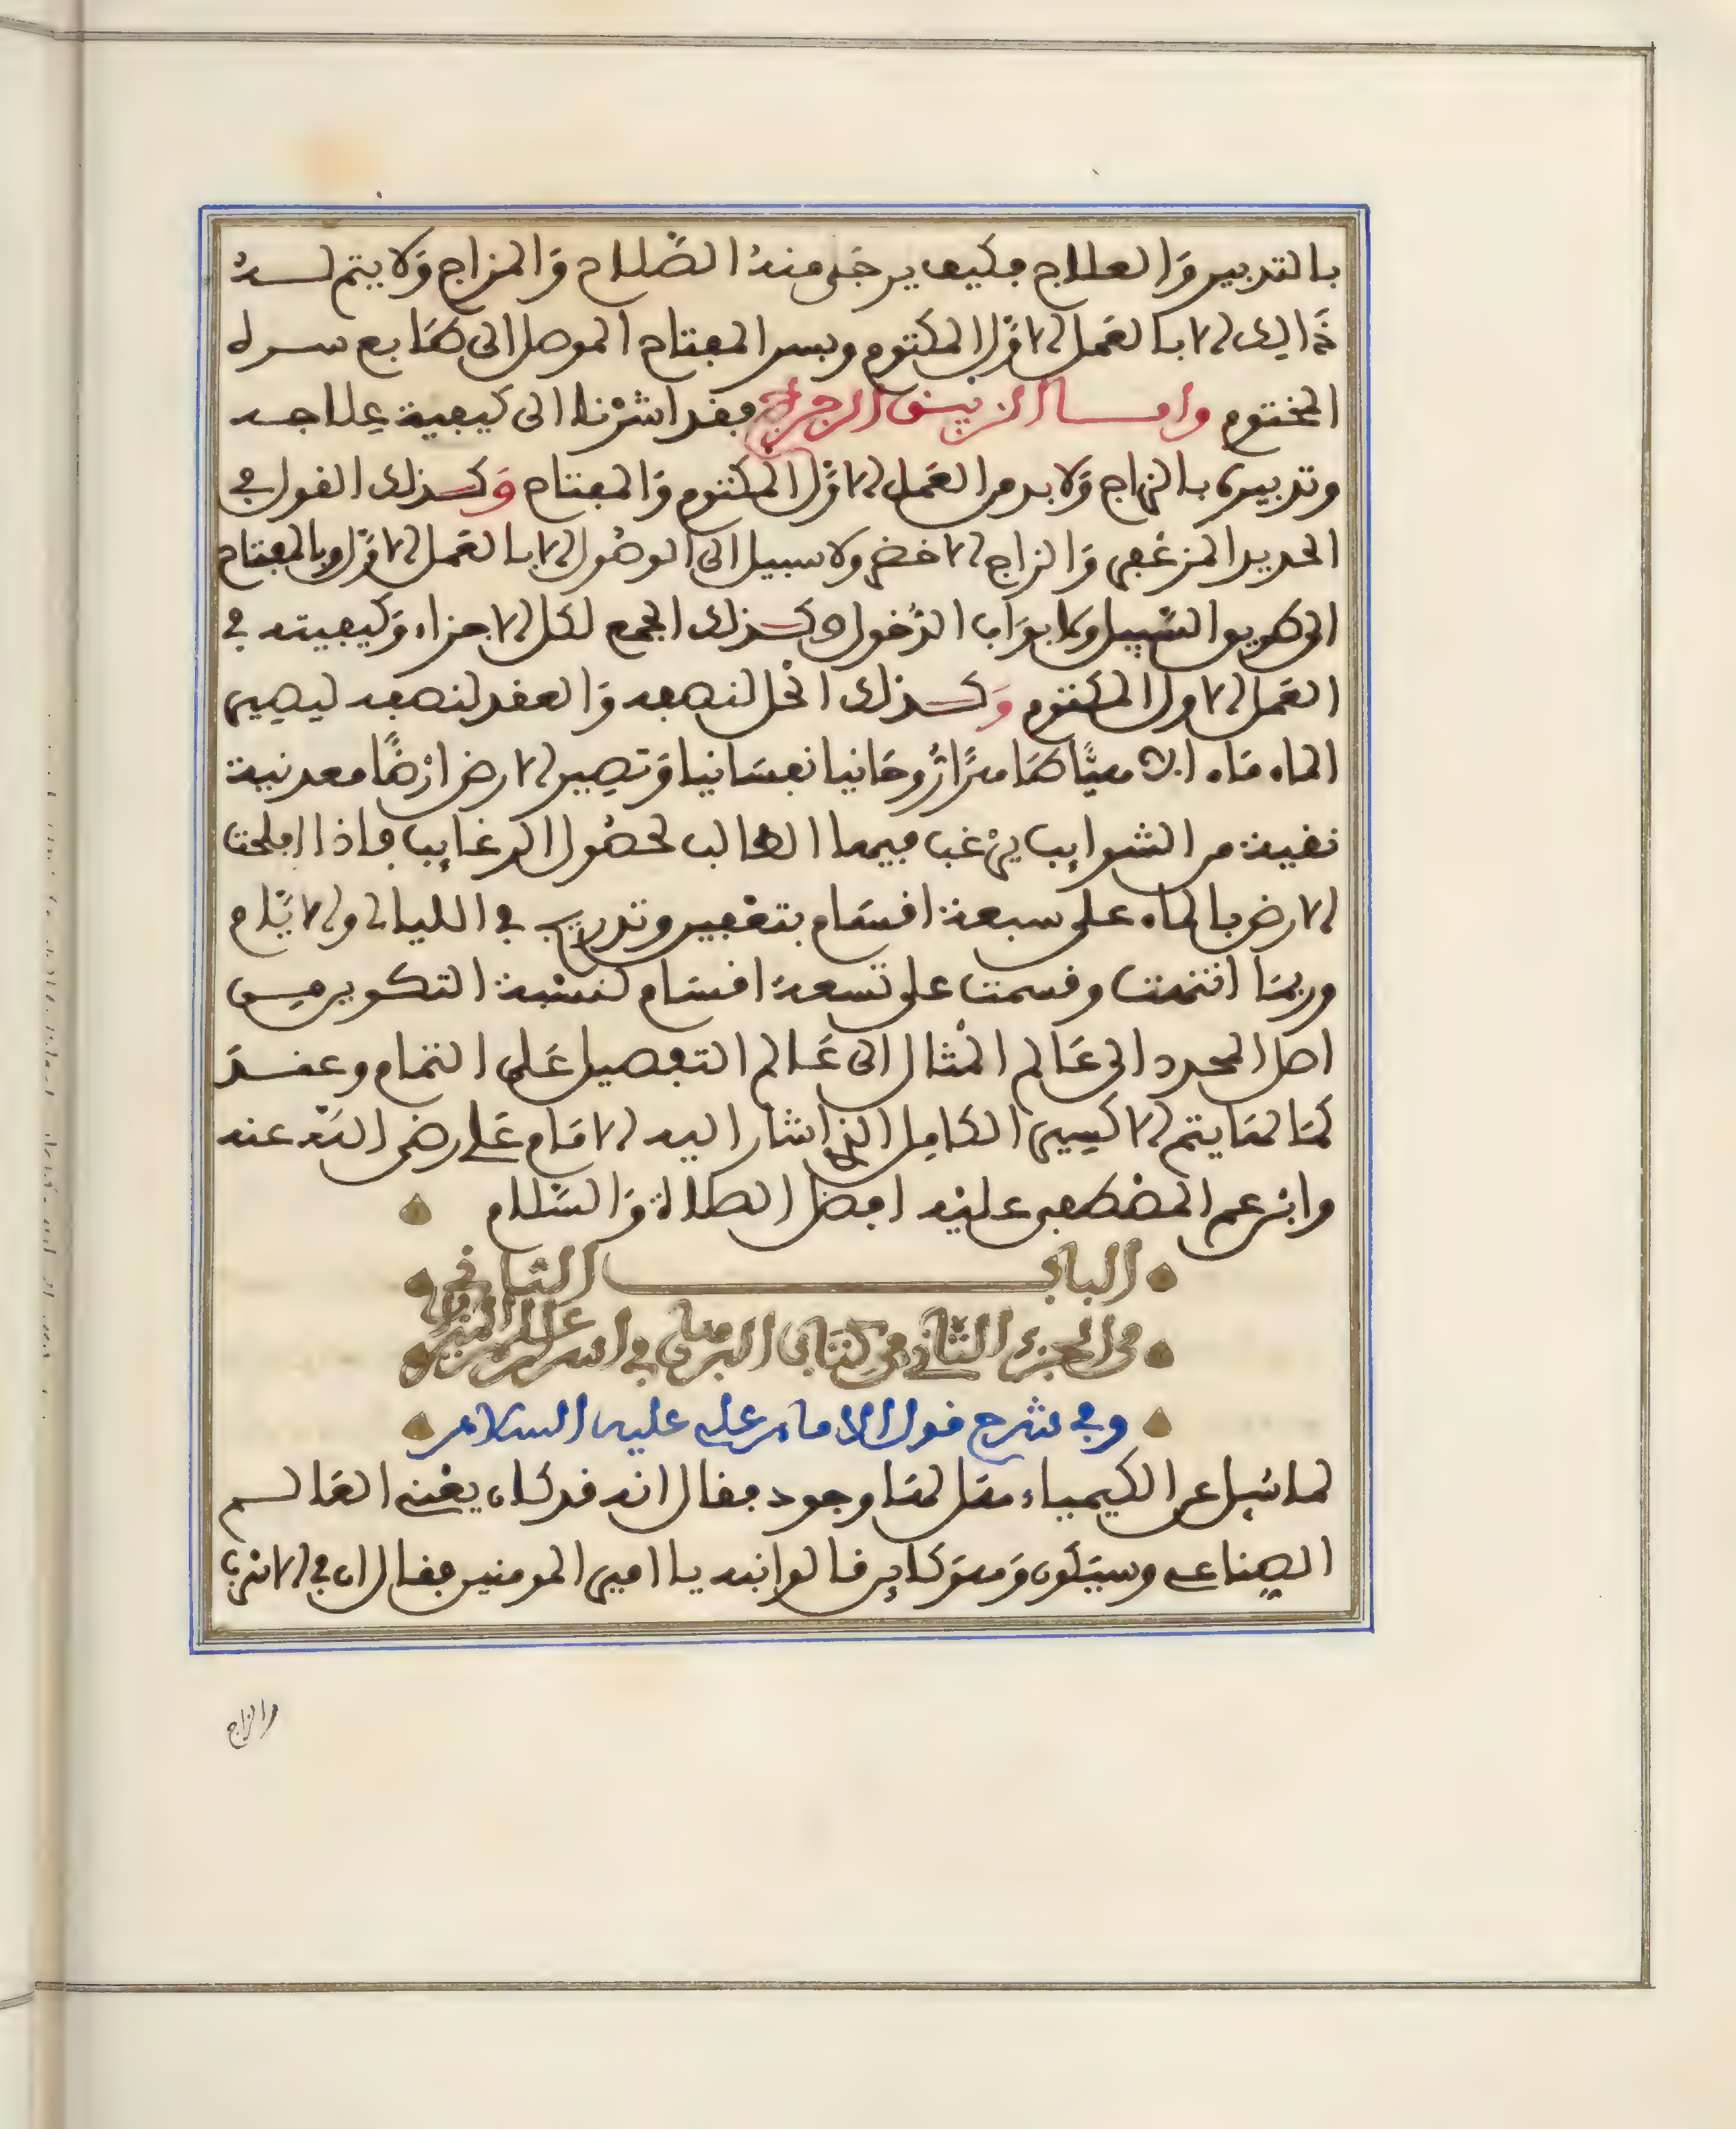 بالتدبير وَالعلاج فكيف يرجَى منهُ الصَّلاح وَالمزاج وَلا يتم لــهُ
ذَالك الا بالعَمل الاوَّل المكتوم وبسر المفتاح الموصل الى طابع سره
المختوم وامـــا الزيبق الرجراج فقد اشرْنا الى كيفية عِلاجــه
وتدبيره بالزاج وَلا بد من العَمل الاوَّل المكتوم وَالمفتاح وَكــذلك القول في
الحديد المزعْفر وَالزاج الاخضر ولا سبيل الى الوصُول الا بالعَمل الاوَّل وبالمفتاح
الى طريق السَّبيل ولابوَاب الدُخول وكــذلك الجمع لكل الاجزاء وَكيفيته في
العَمل الاول المكتوم وَكــذلك الحْل لنصفه وَالعقد لنصفه ليصير
الماء مَاء الاهيًّا طَاهرًا رُوحَانيا نفسَانيا وَتصِير الارض ارْضًا معدنية
نقية من الشوايب يرْغب فيها الطالب لحصُول الرغايب فاذا املحت
الارض بالماء على سبعة اقسَام بتقطير وتدريب في الليالي والايَّام
وربمَا انتهت وقسمت على تسعة اقسَام لنسْبة التكوير مــن
اصل المحدد الى عَالم المْثال الى عَالم التفصيل عَلى التمام وعقــدَ
لمَا لمَا يتم الاكسير الكامِل الذي اشار اليه الامَام عَلي رضى اللهُ عنه
وابْن عم المصْطفى عليْه افضل الصلاة وَالسَّلام
البابـــــــــ الثاني
من الجزء الثاني من كتاب البرهان في اسرار علم الميزان
وفي شرح قول الامام علي عليه السلام
لما سُئِل عن الكيمياء هل لهَا وجود فقال انه قد كان يعْني العَالــم
الصِناعي وسيَكون وَهوَ كاين قالوا انبه يا امير المومنين فقال ان في الاسْرب
والزاج